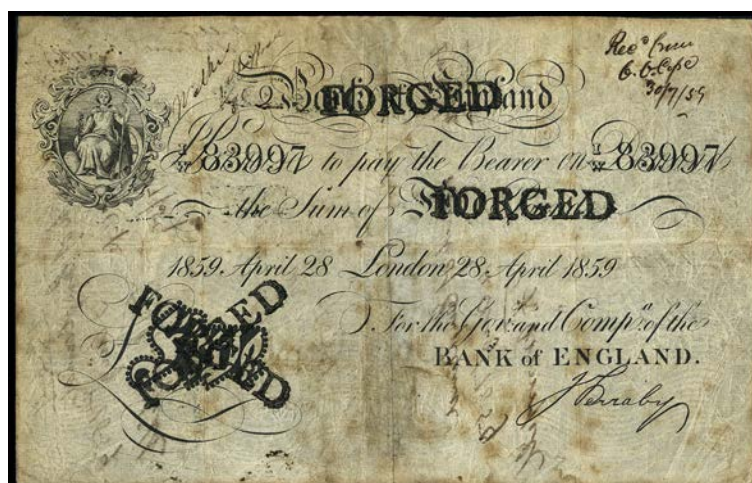 Rec^d from
30/7/59
Bank of England
FORGED
I Promise to pay the Bearer on Demand
83997 83997
the Sum of
FORGED
1859 April 28 London 28 April 1859
FORGED
FORGED
For the Gov.^r and Comp.^a of the
BANK of ENGLAND.
J Ferraby